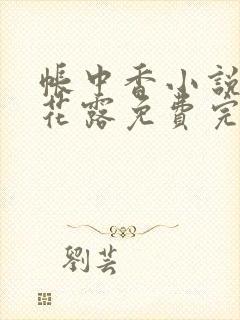 帳中香小說
花露免費完
劉芸